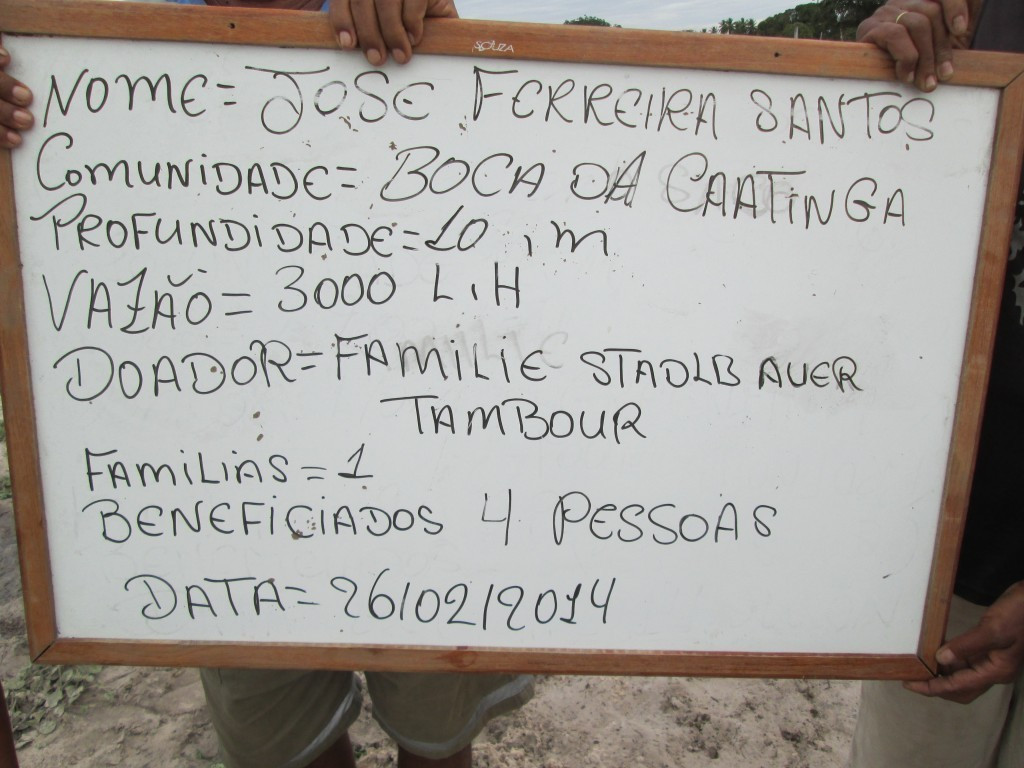 SOUZA
NOME= JOSE FERREIRA SANTOS
COMUNIDADE= BOCA DA CAATINGA
PROFUNDIDADE=10 , m
VAZÃO= 3000 L,H
DOADOR= FAMILIE STADLBAUER
TAMBOUR
FAMILIAS=1
BENEFICIADOS 4 PESSOAS
DATA= 26/02/2014